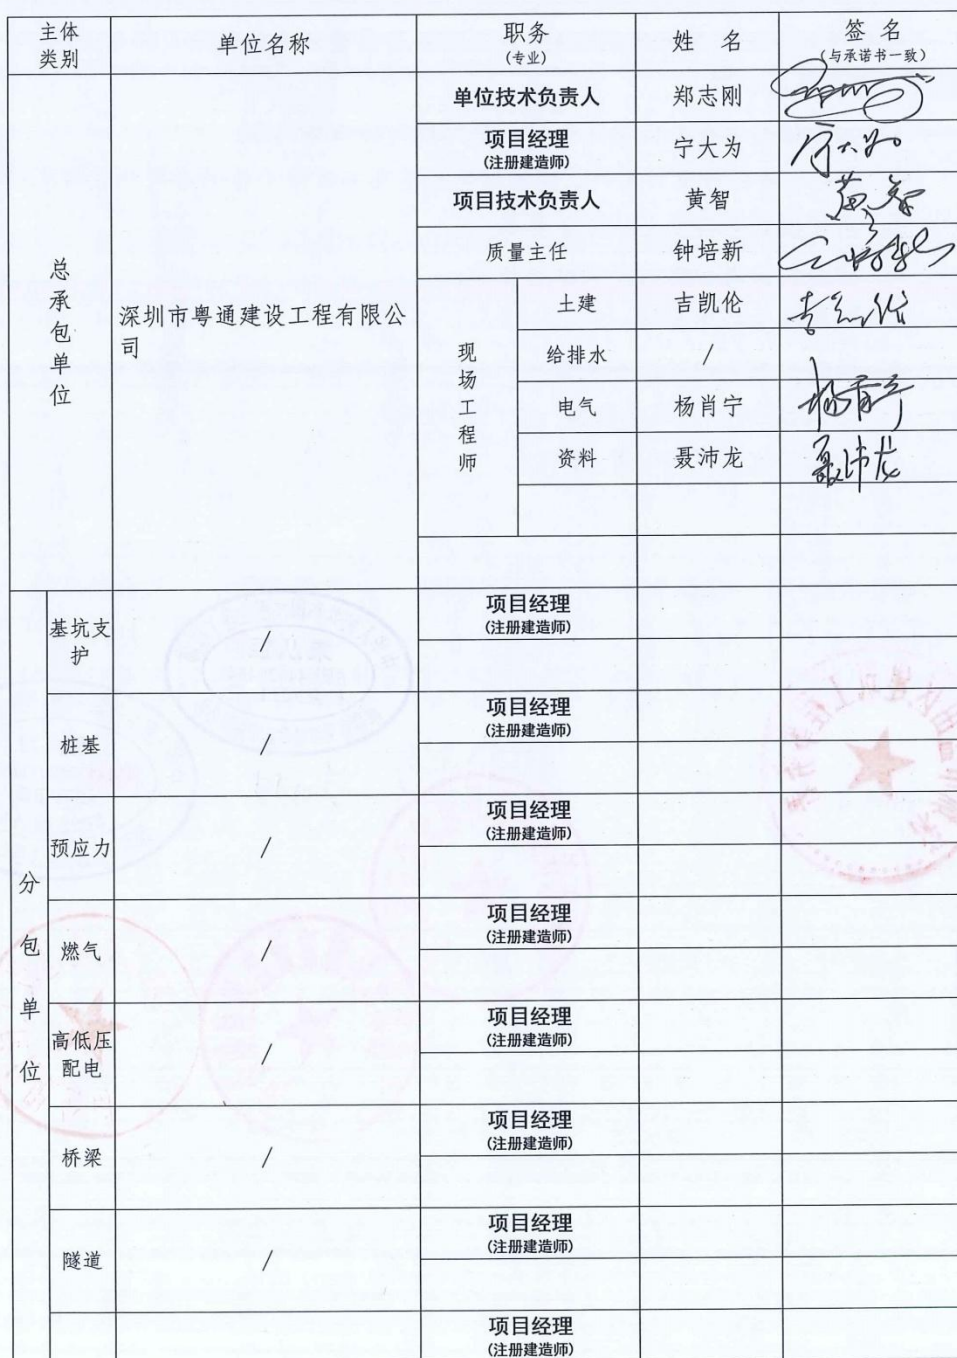 主体 类别 单位名称 职务 (专业) 姓 名 签 名 (与承诺书一致)
总承包单位
深圳市粤通建设工程有限公
司
单位技术负责人 郑志刚
项目经理 宁大为
(注册建造师)
项目技术负责人 黄智
质量主任 钟培新
现场工程师
土建 吉凯伦
给排水 /
电气 杨肖宁 杨肖宁
资料 聂沛龙 聂沛龙
分包单位
基坑支
护
/
项目经理
(注册建造师)
桩基 /
项目经理
(注册建造师)
预应力 /
项目经理
(注册建造师)
燃气 /
项目经理
(注册建造师)
高低压
配电
/
项目经理
(注册建造师)
桥梁 /
项目经理
(注册建造师)
隧道 /
项目经理
(注册建造师)
项目经理
(注册建造师)